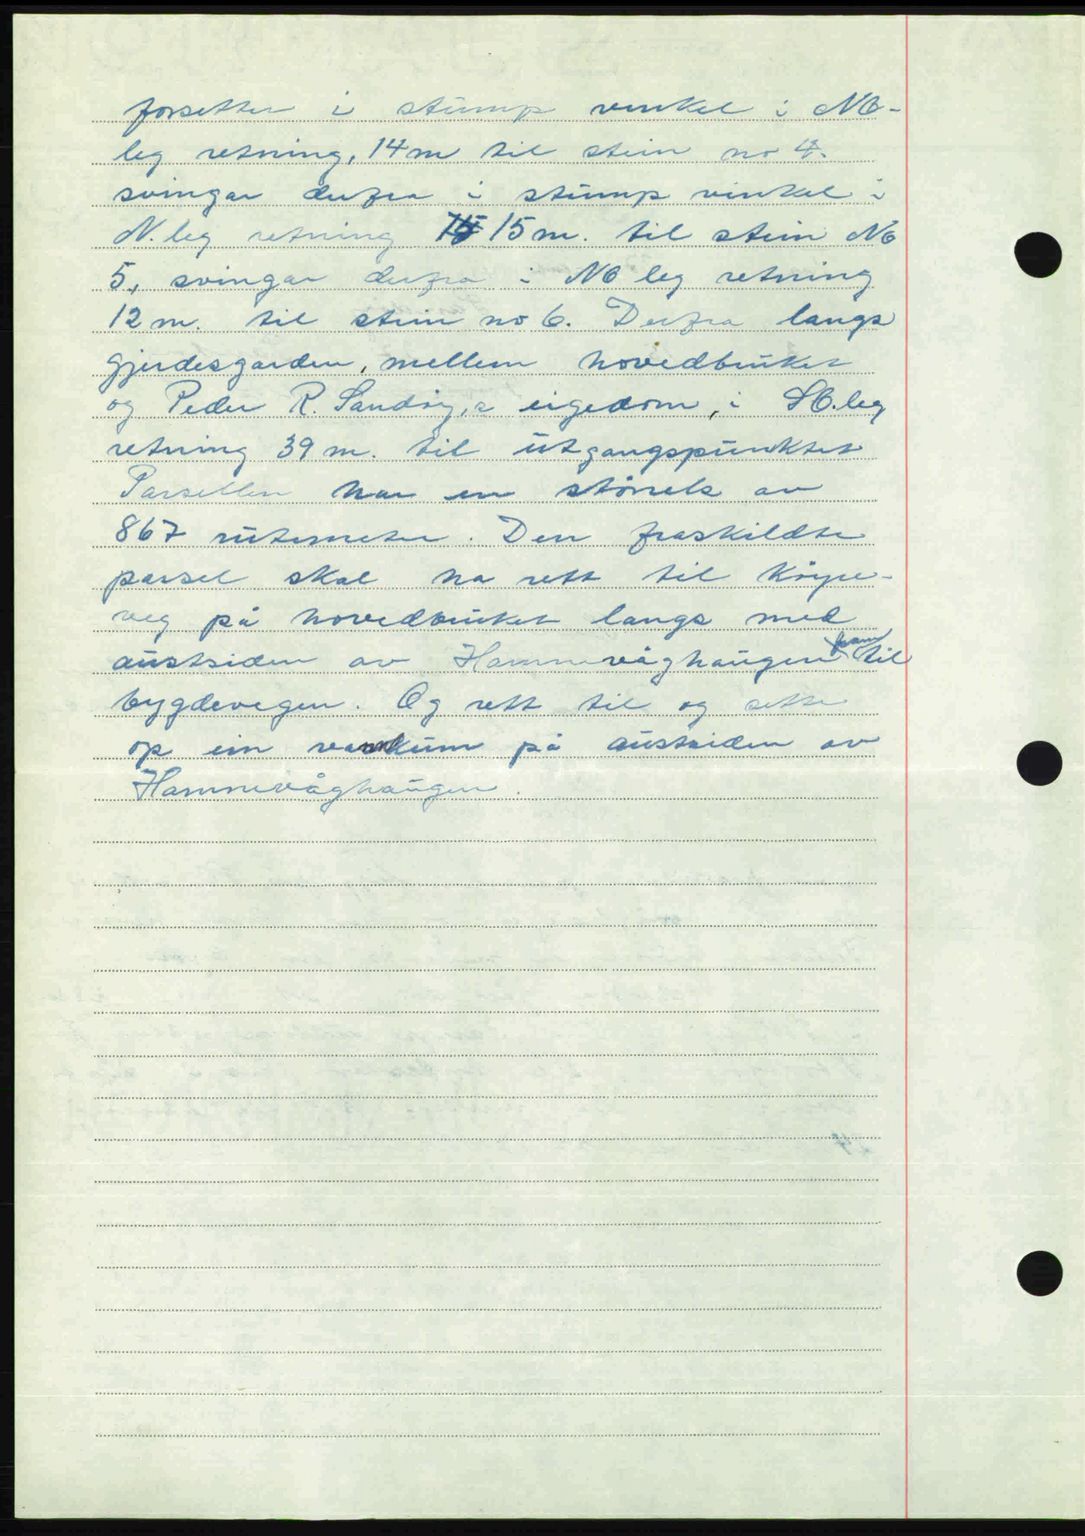 forsetter i stump vinkel i NO-
leg retning, 14 m til stein no 4.
svingar derfra i stump vinkel i
N. leg retning 15 m. til stein No
5, svingar derfra i NO leg retning
12 m. til stein no 6. Derfra langs
gjerdesgarden, mellem hovedbruket
og Peder R. Sandøy,s eigedom, i SO. leg
retning 39 m. til utgangspunktet
Parsellen har en størrels av
867 rutemeter. Den fraskildte
parsel skal ha rett til køyre-
veg på hovedbruket langs med
austsiden av Hamnevåghaugen fram til
bygdevegen. Og rett til og sette
op ein vannkum på austsiden av
Hamnevåghaugen.